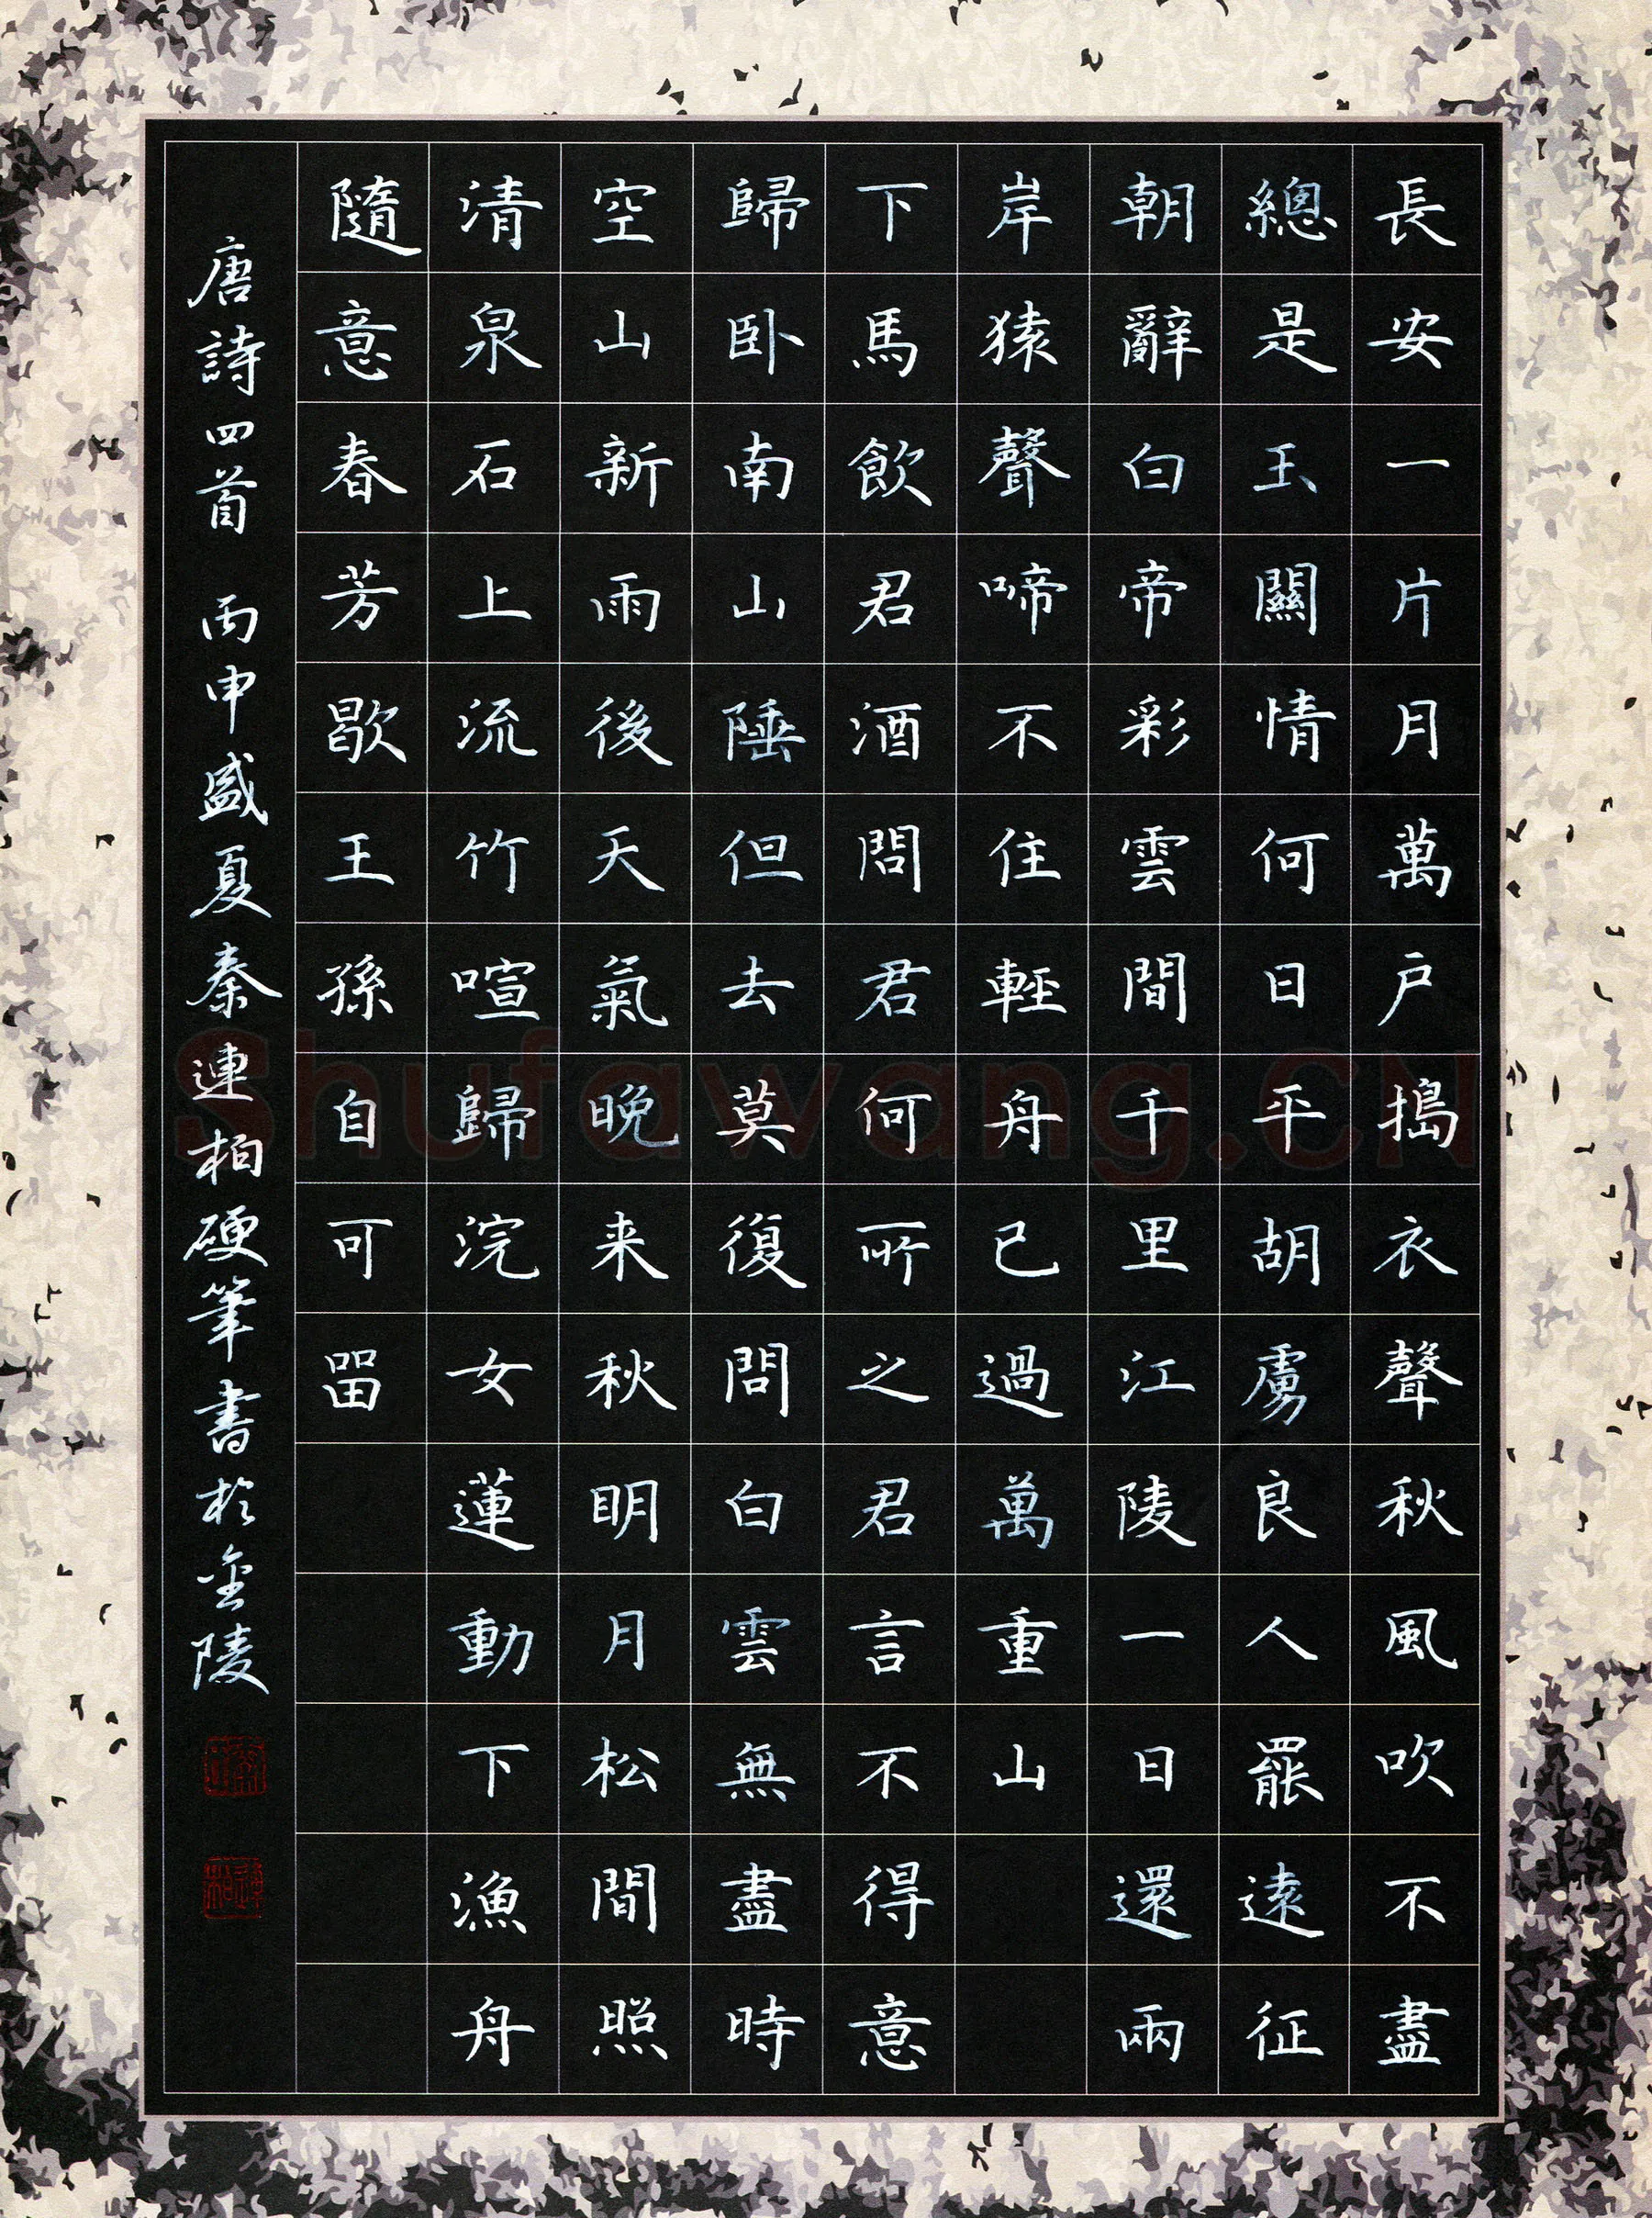 長安一片月萬戶搗衣聲秋風吹不盡
總是玉關情何日平胡虜良人罷遠征
朝辭白帝彩雲間千里江陵一日還兩
岸猿聲啼不住輕舟已過萬重山
下馬飲君酒問君何所之君言不得意
歸卧南山陲但去莫復問白雲無盡時
空山新雨後天氣晚来秋明月松間照
清泉石上流竹喧歸浣女蓮動下漁舟
隨意春芳歇王孫自可留
唐詩四首 丙申盛夏秦連柏硬筆書於金陵
Shufawang.CN